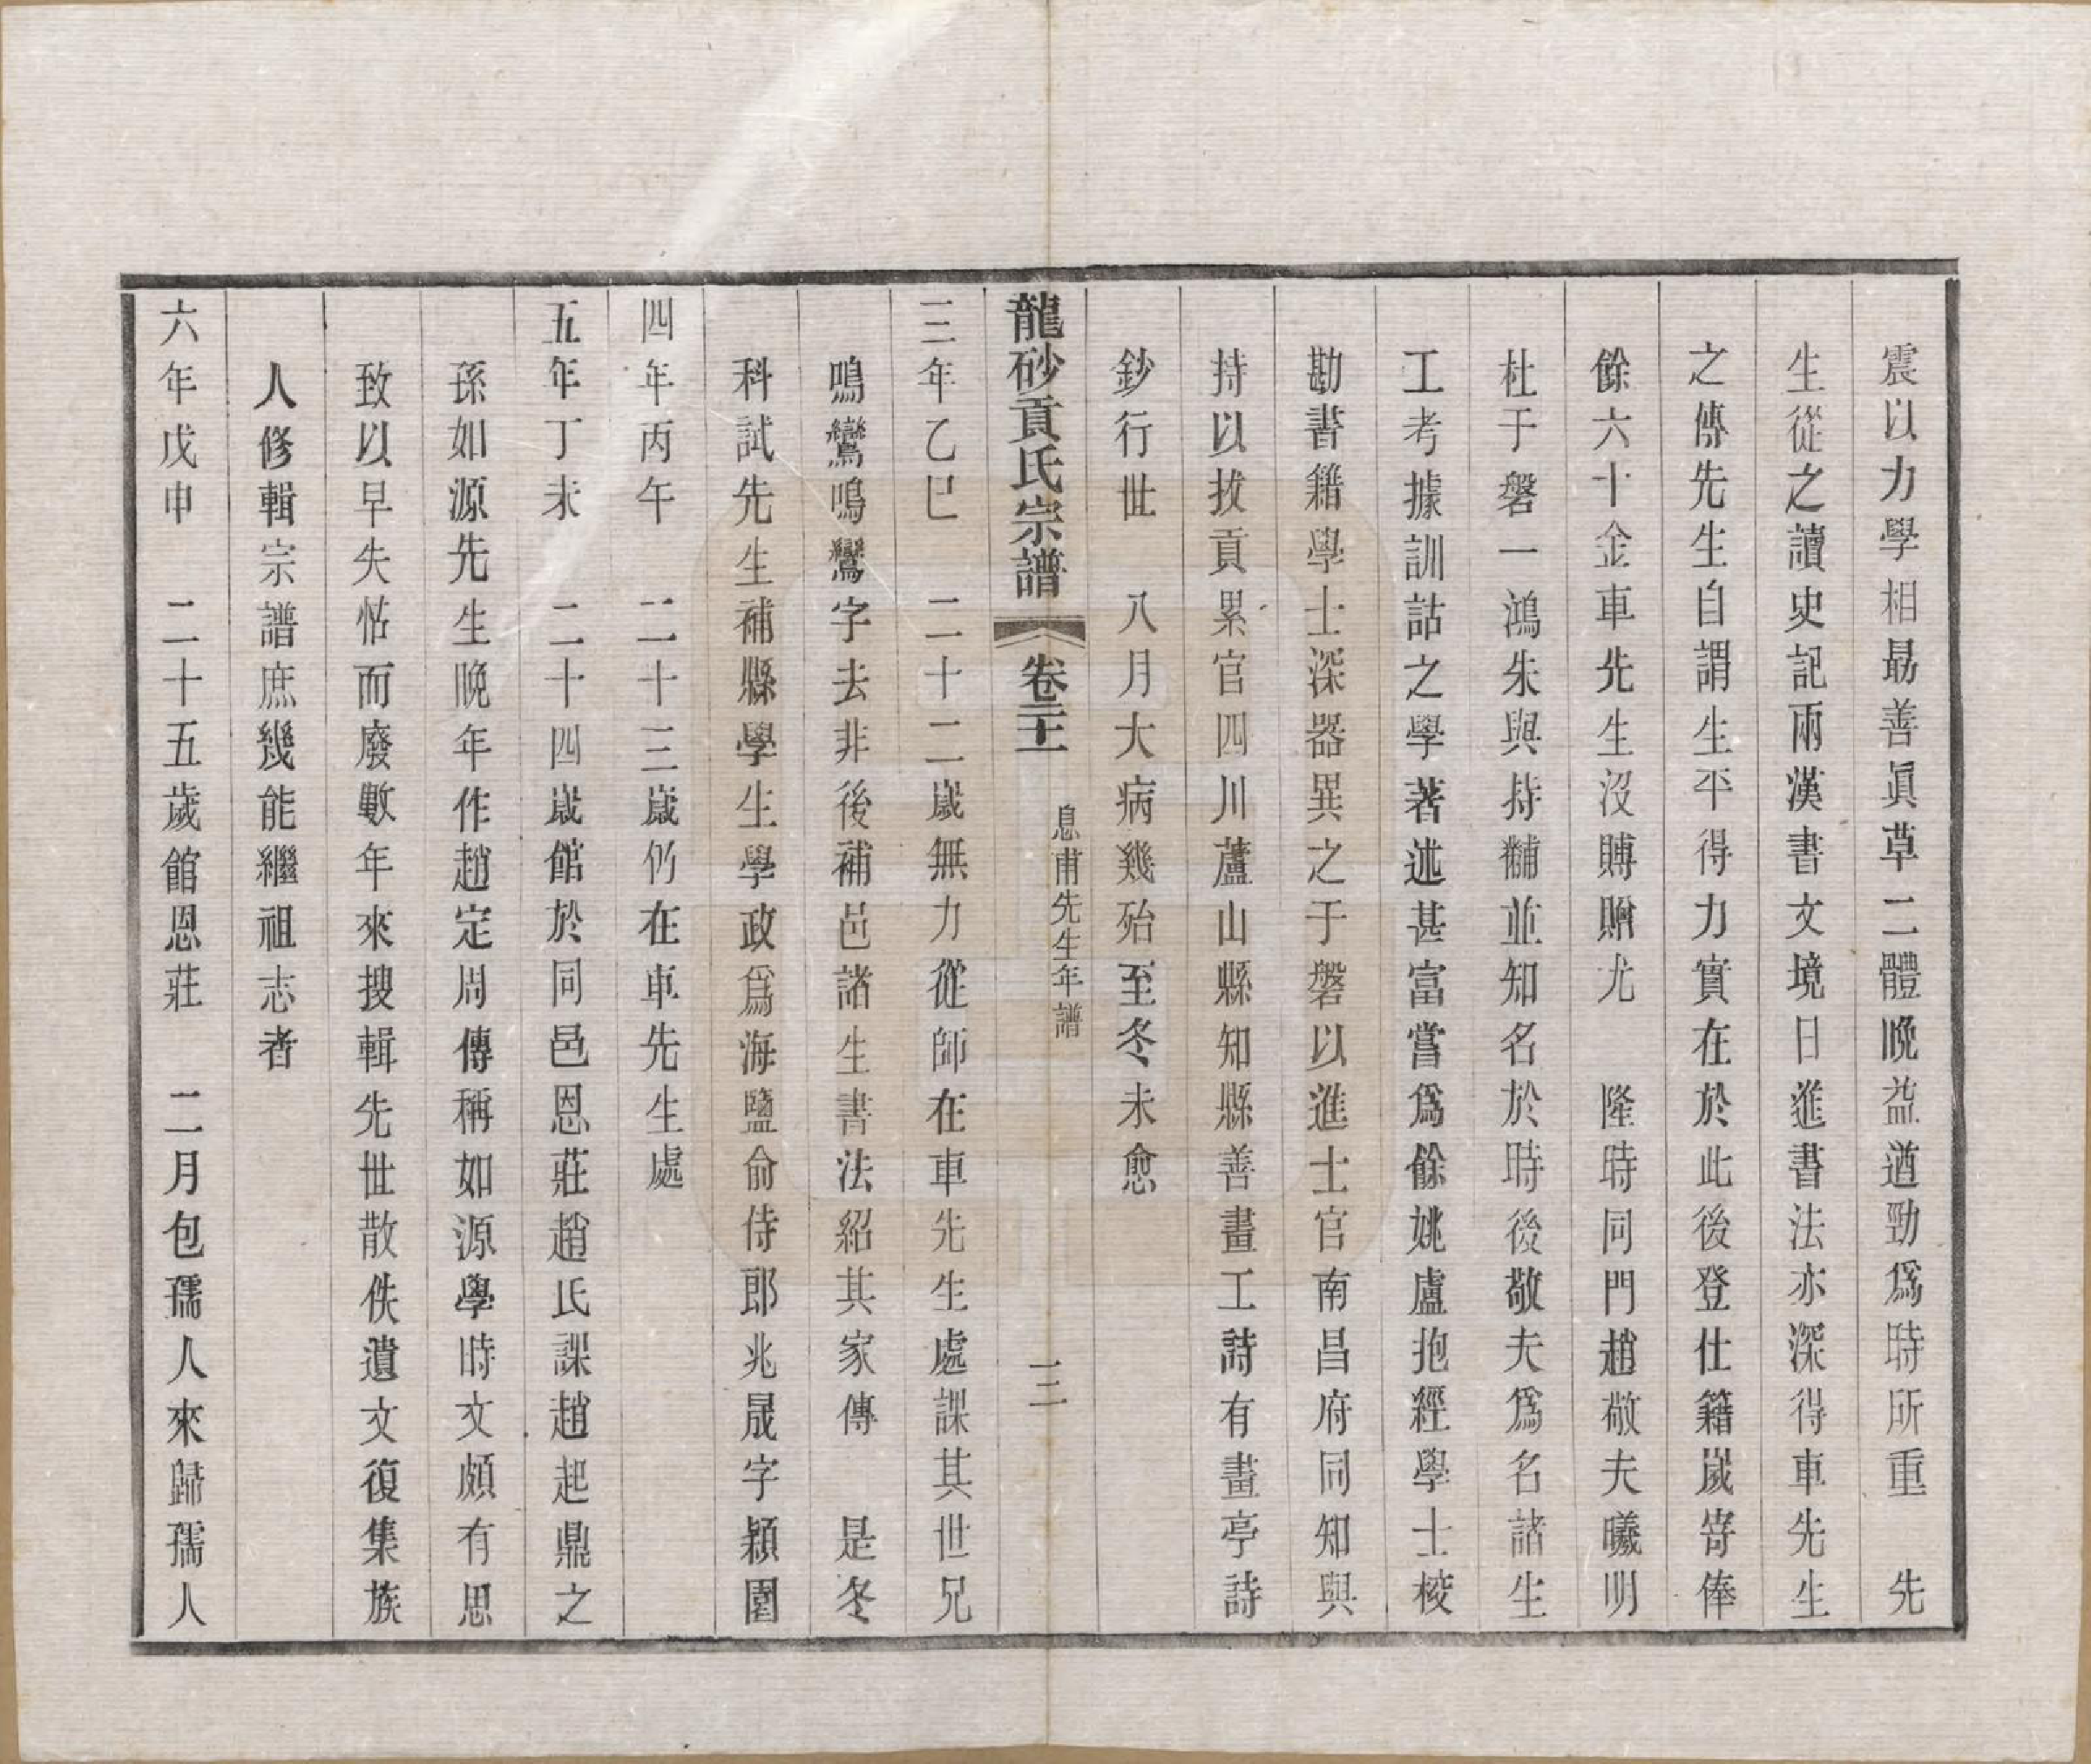 震以力學相勗善眞草二體晚益遒勁爲時所重　先
生從之讀史記兩漢書文境日進書法亦深得車先生
之傳先生自謂生平得力實在於此後登仕籍嵗寄俸
餘六十金車先生沒賻贈尤　隆時同門趙敬夫曦明
杜于磐一鴻朱與持黼並知名於時後敬夫爲名諸生
工考據訓詁之學著述甚富嘗爲餘姚盧抱經學士校
勘書籍學士深器異之于磐以進士官南昌府同知與
持以拔貢累官四川蘆山縣知縣善畫工詩有畫亭詩
鈔行世　八月大病幾殆至冬未愈
龍砂貢氏宗譜　卷二十一　息甫先生年譜　三
三年乙巳　二十二嵗無力從師在車先生處課其世兄
鳴鸞鳴鷟字去非後補邑諸生書法紹其家傳　是冬
科試先生補縣學生學政爲海鹽俞侍郎兆晟字穎園
四年丙午　二十三嵗仍在車先生處
五年丁未　二十四嵗館於同邑恩莊趙氏課趙起鼎之
孫如源先生晚年作趙定周傳稱如源學時文頗有思
致以早失怙而廢數年來搜輯先世散佚遺文復集族
人修輯宗譜庶幾能繼祖志者
六年戊申　二十五歲館恩莊　二月包孺人來歸孺人